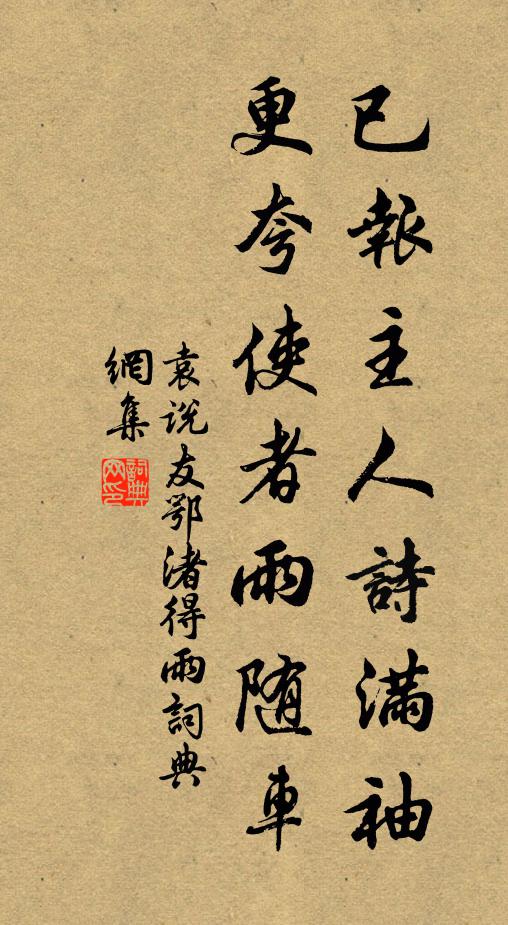 已報主人詩滿袖
更夸使者雨隨車
袁说友鄂渚得雨詞典
網集
詞典
网印